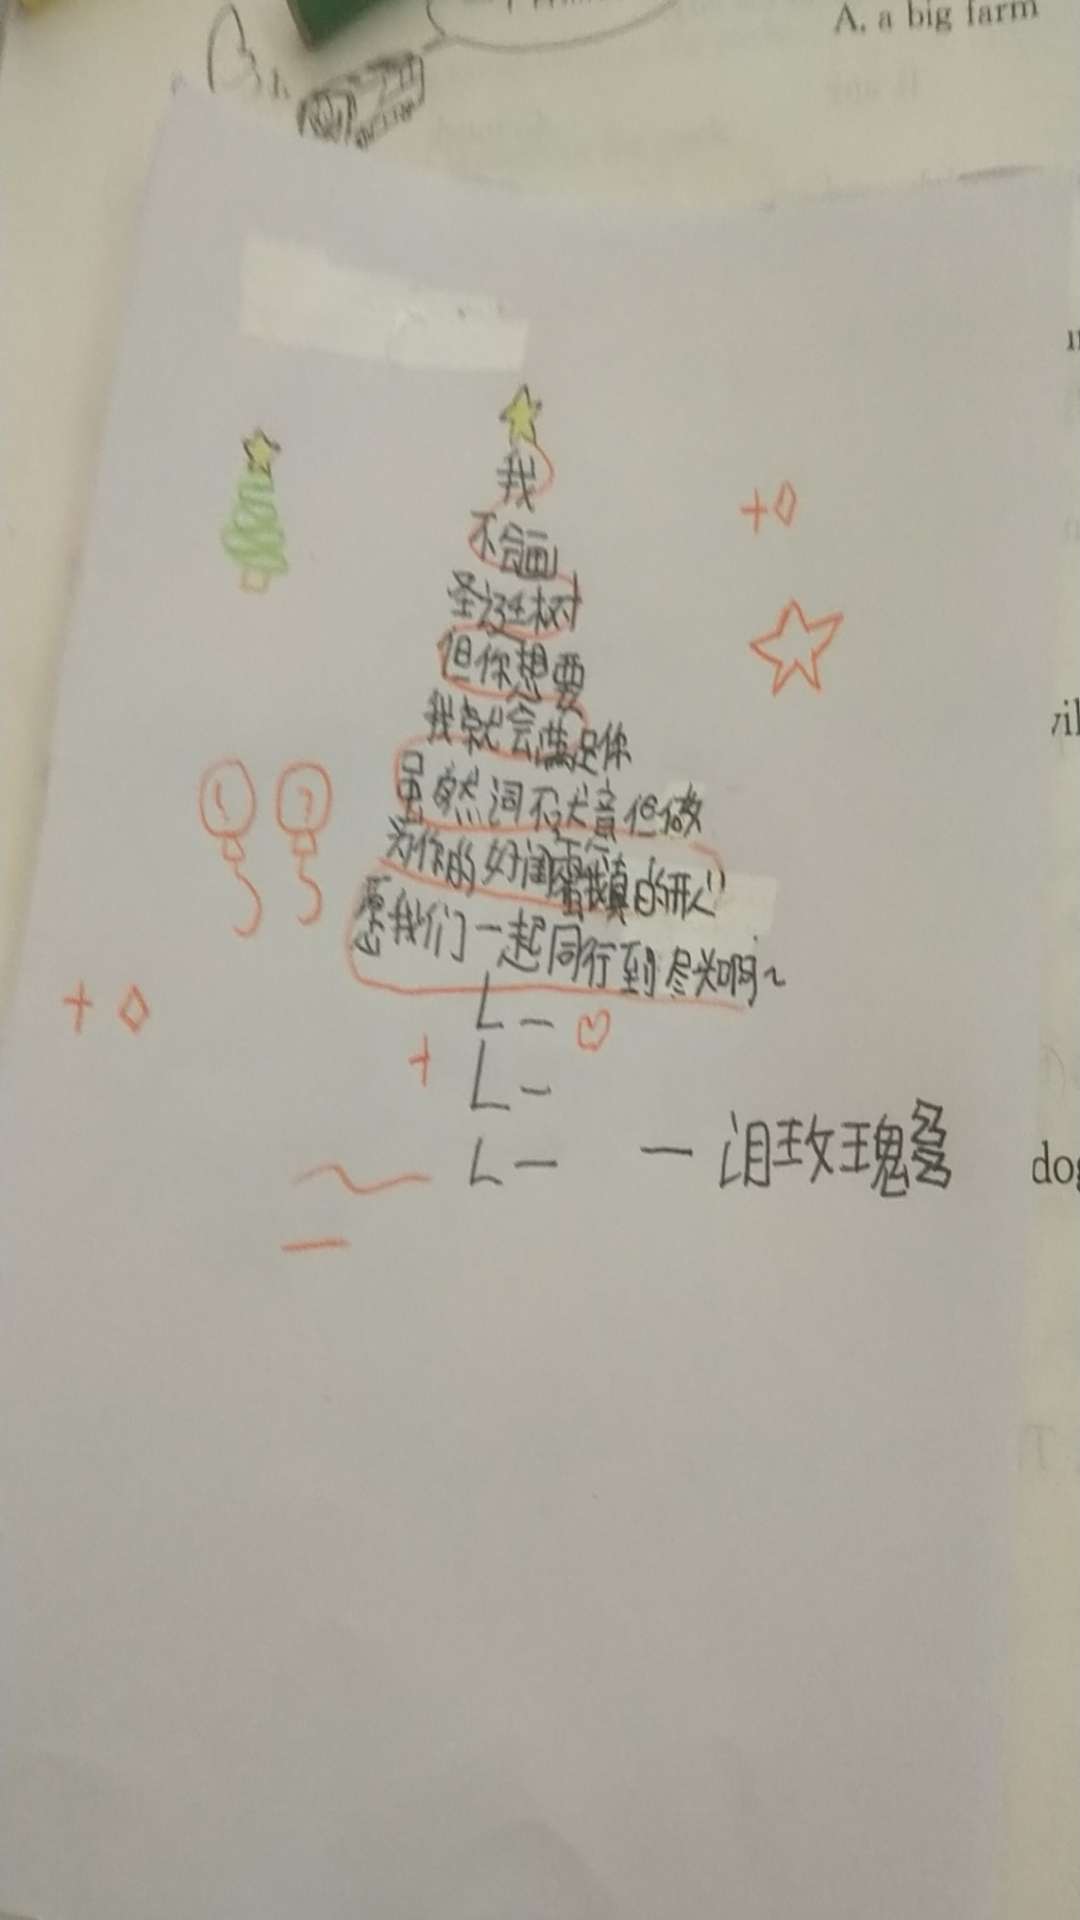 A. a big farm
我
不会画
圣诞树
但你想要
我就会满足你
虽然词不达意但做
为你的好闺蜜我真的开心
愿我们一起同行到尽头啊~
L—
L—
L—
—泪玫瑰
dog